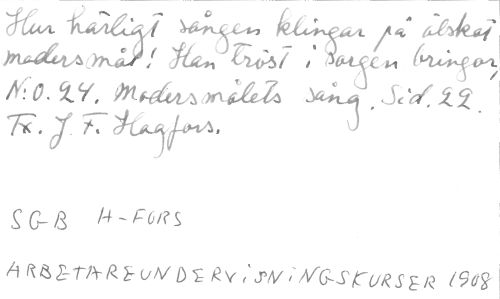 Hur härligt sången klingar på älskat
modersmål! Han tröst i sorgen bringar,
N:o. 24. Modersmålets sång. Sid. 22.
Tx. J. F. Hagfors.
SGB H-FORS
ARBETAREUNDERVISNINGSKURSER 1908